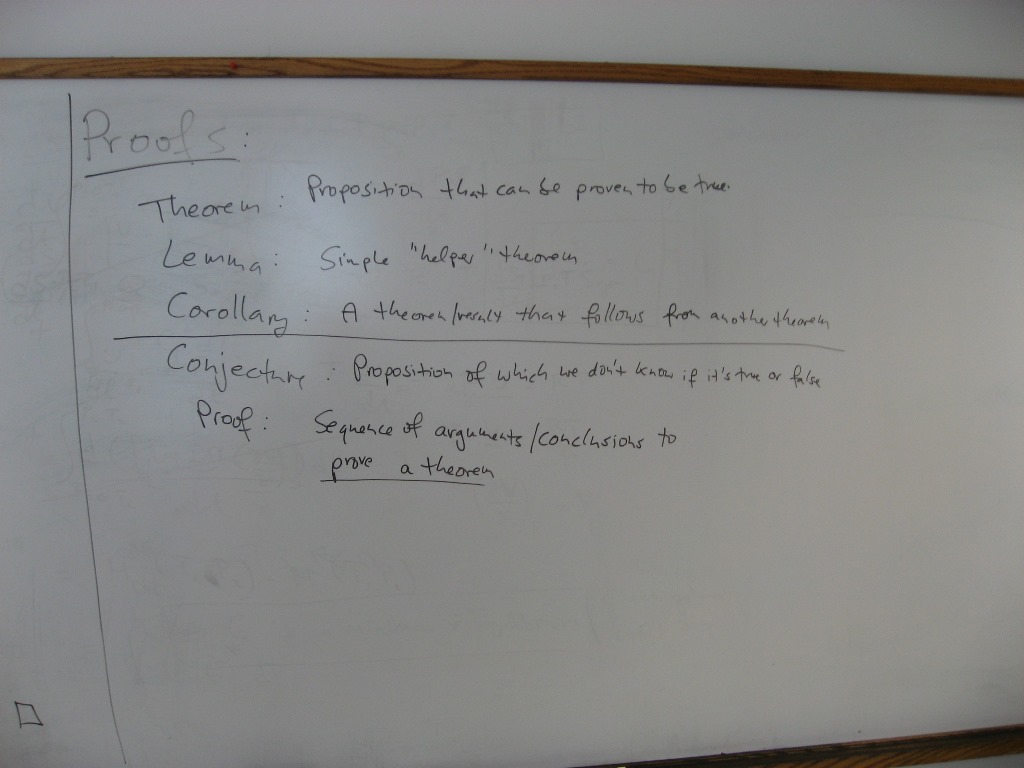 Proofs:
Theorem: Proposition that can be proven to be true.
Lemma: Simple "helper" theorem
Corollary: A theorem/result that follows from another theorem
Conjecture: Proposition of which we don't know if it's true or false
Proof: Sequence of arguments/conclusions to
prove a theorem